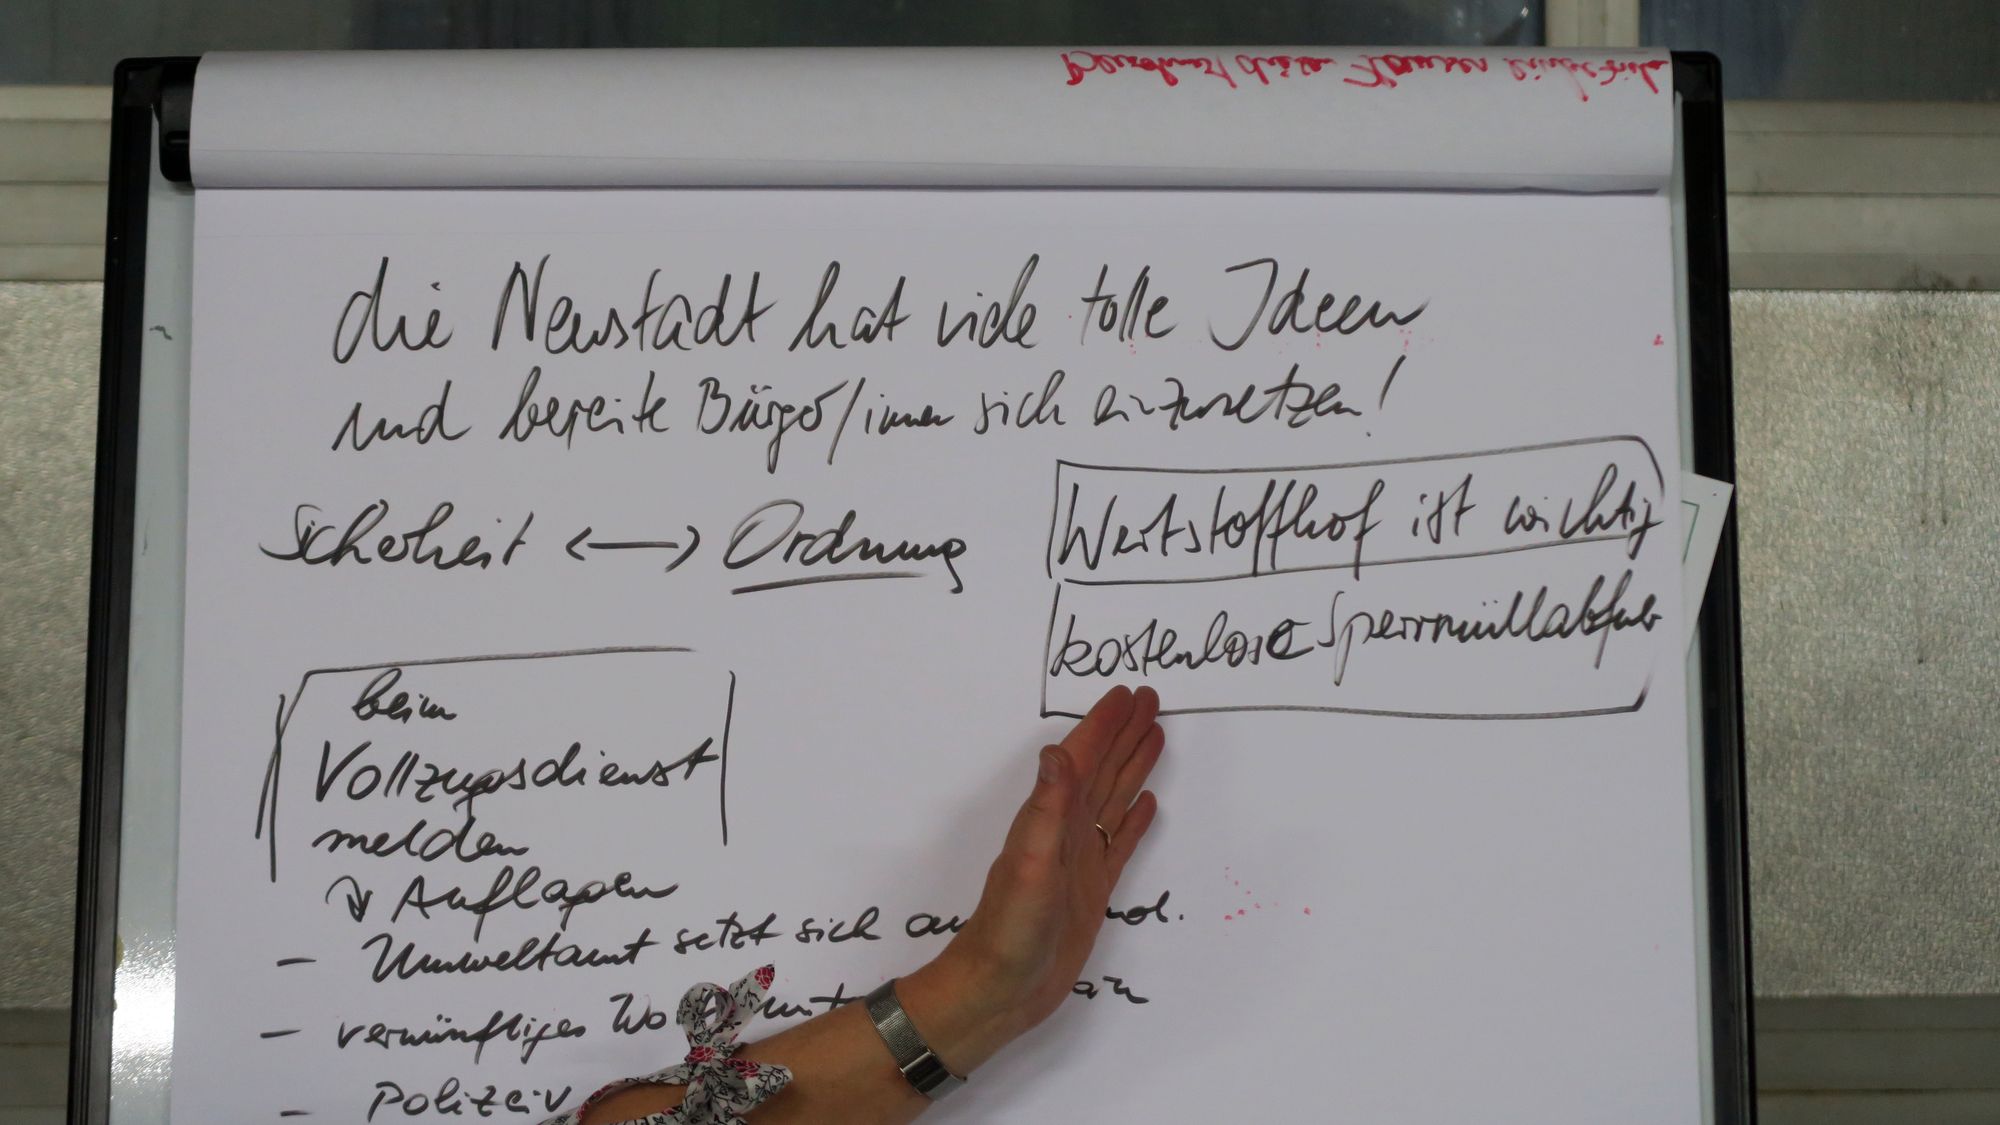 die Neustadt hat viele tolle Ideen
und bereite Bürger/innen sich einzusetzen!
Sicherheit <-> Ordnung
Wertstoffhof ist wichtig
kostenlose Sperrmüllabfuhr
beim
Vollzugsdienst
melden
↳ Auflagen
- Umweltamt setzt sich
- vernünftiges
-